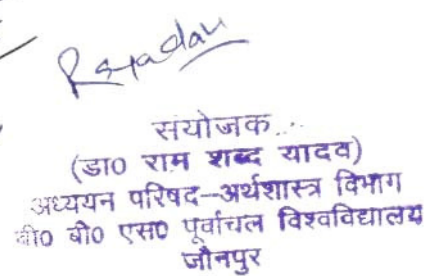 Rsyadav
संयोजक
(डा0 राम शब्द यादव)
अध्ययन परिषद–अर्थशास्त्र विभाग
वी0 बी0 एस0 पूर्वांचल विश्वविद्यालय
जौनपुर